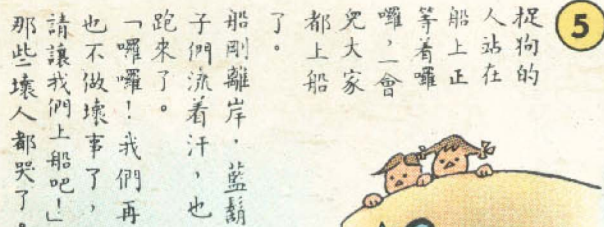 5
捉狗的
人站在
船上正
等着囉
囉，一會
兒大家
都上船
了。
船剛離岸，藍鬍
子們流着汗，也
跑來了。
「囉囉！我們再
也不做壞事了，
請讓我們上船吧！」
那些壞人都哭了。